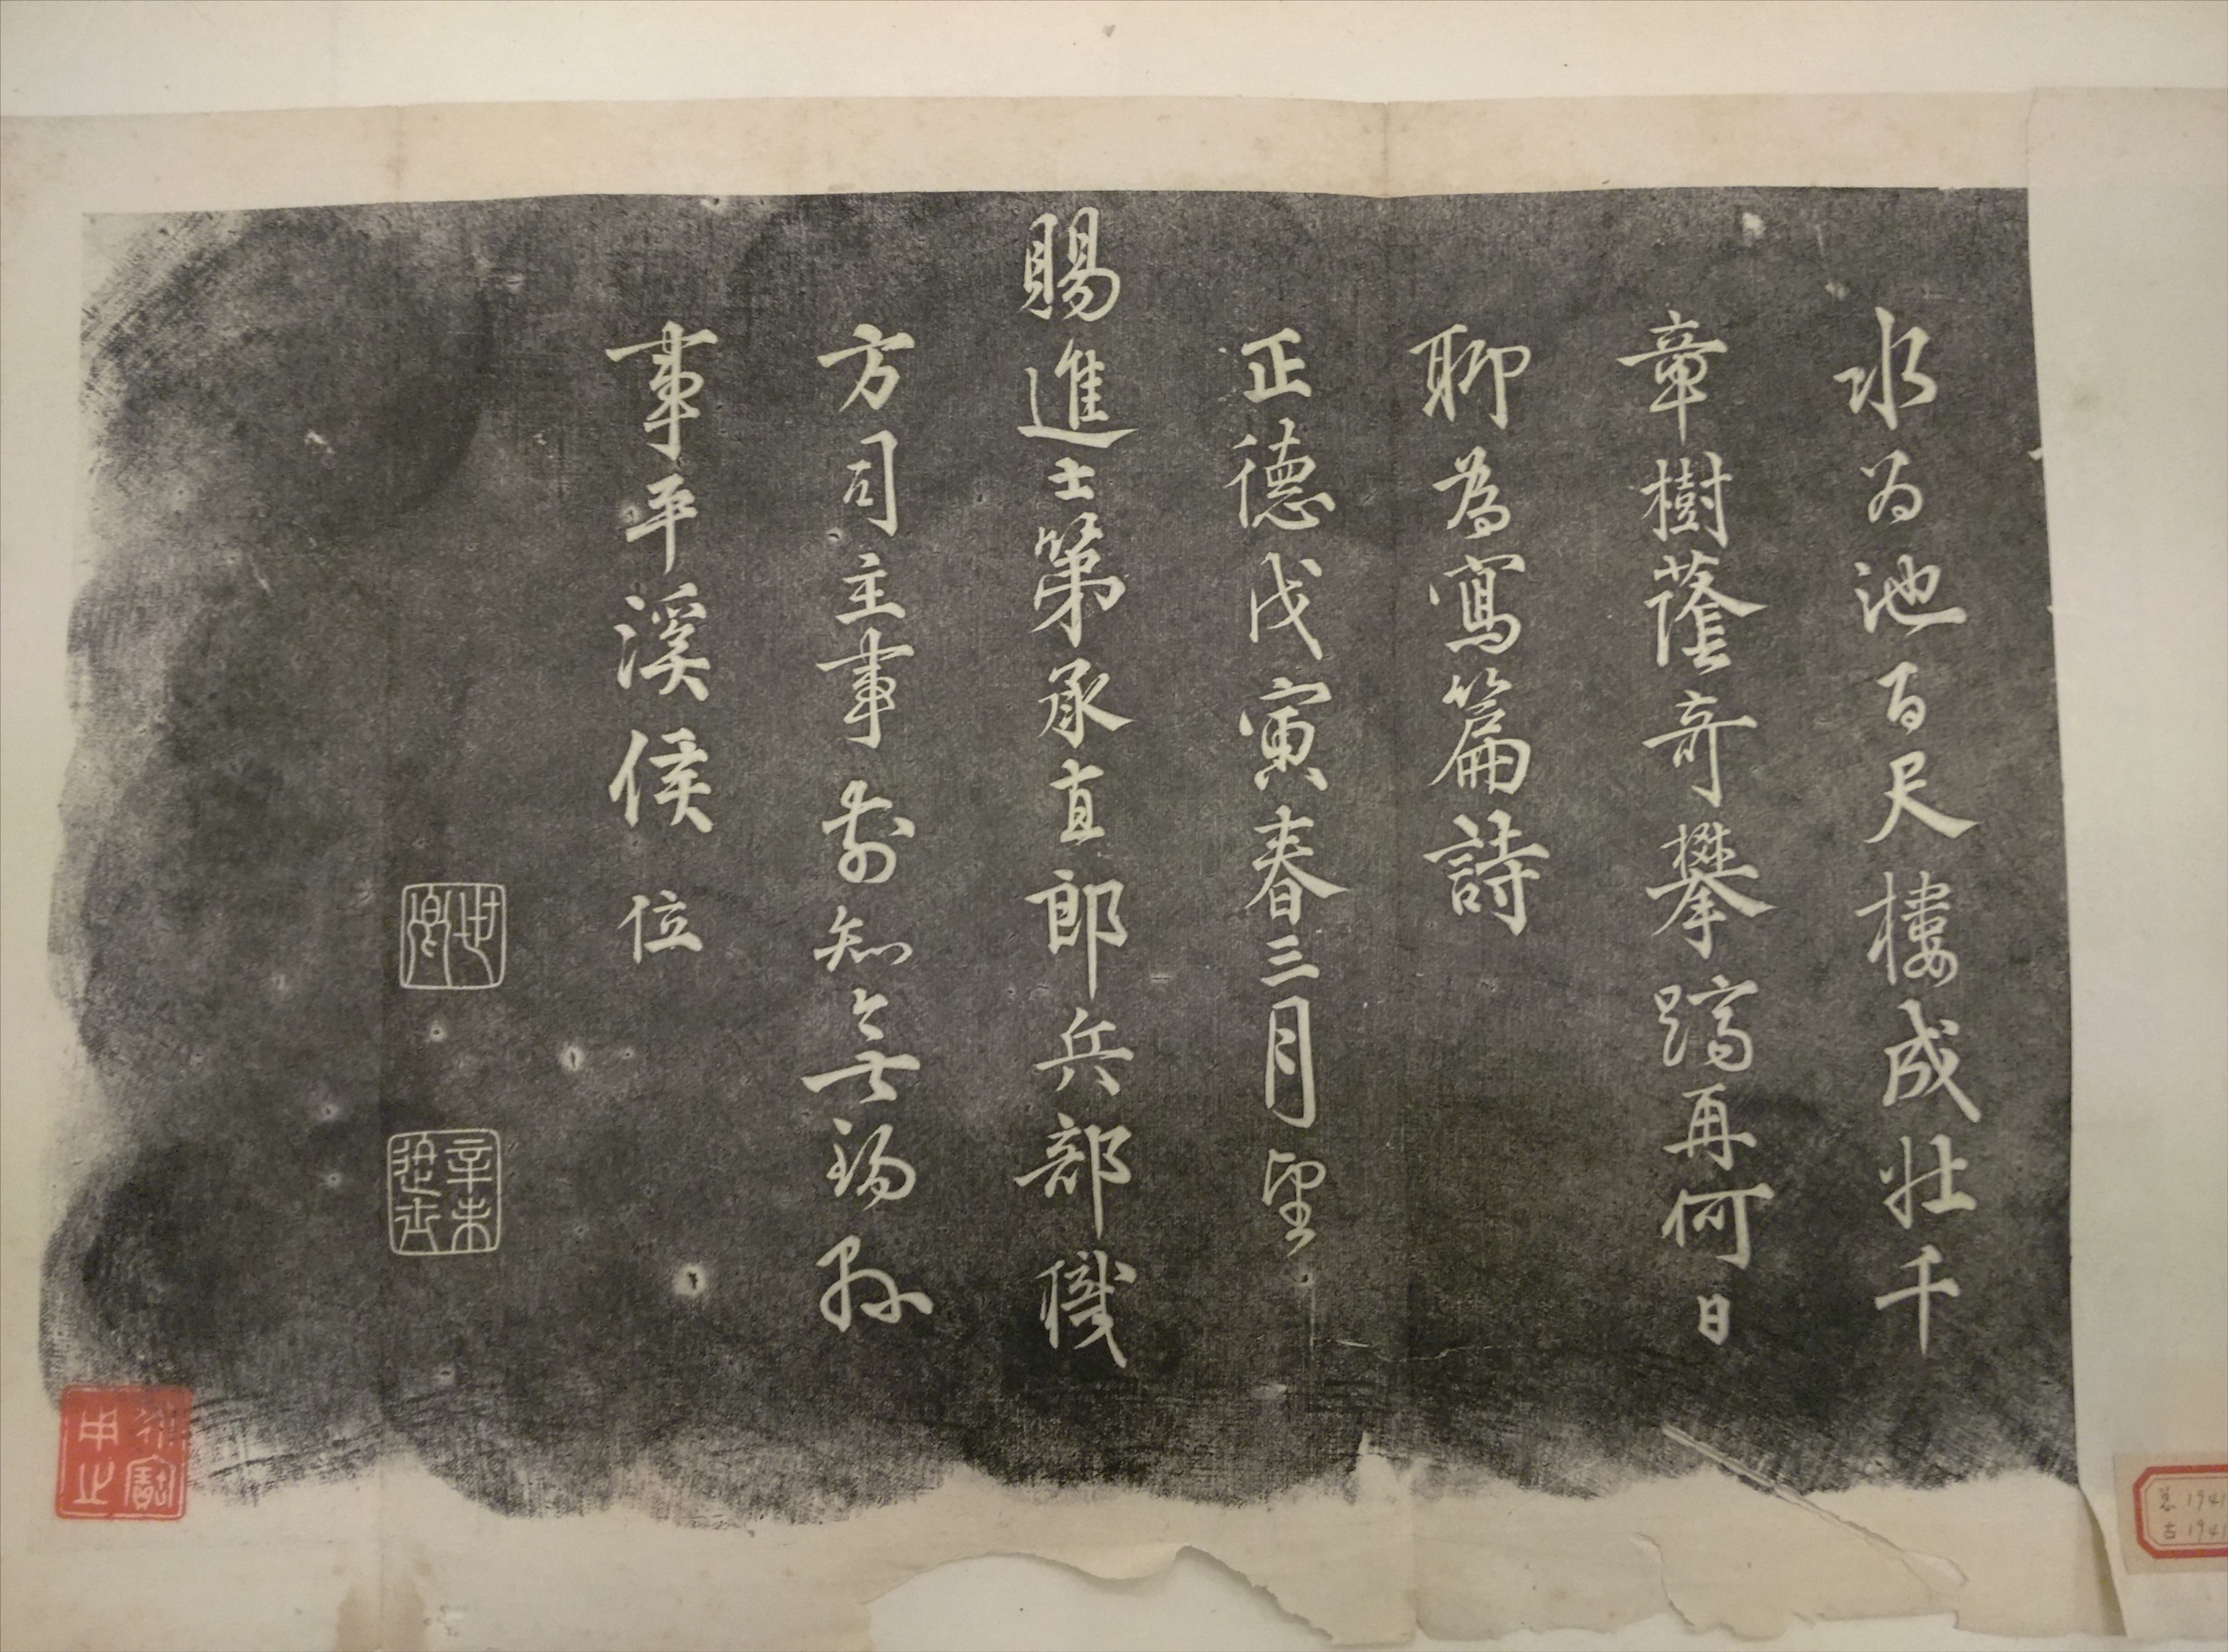 水为池百尺樓成壯千
章樹蔭奇攀躋再何日
聊為寫篇詩
正德戊寅春三月望
賜進士第承直郎兵部職
方司主事前知無錫縣
事平溪侯位
世
辛未進士
總1941
古1941